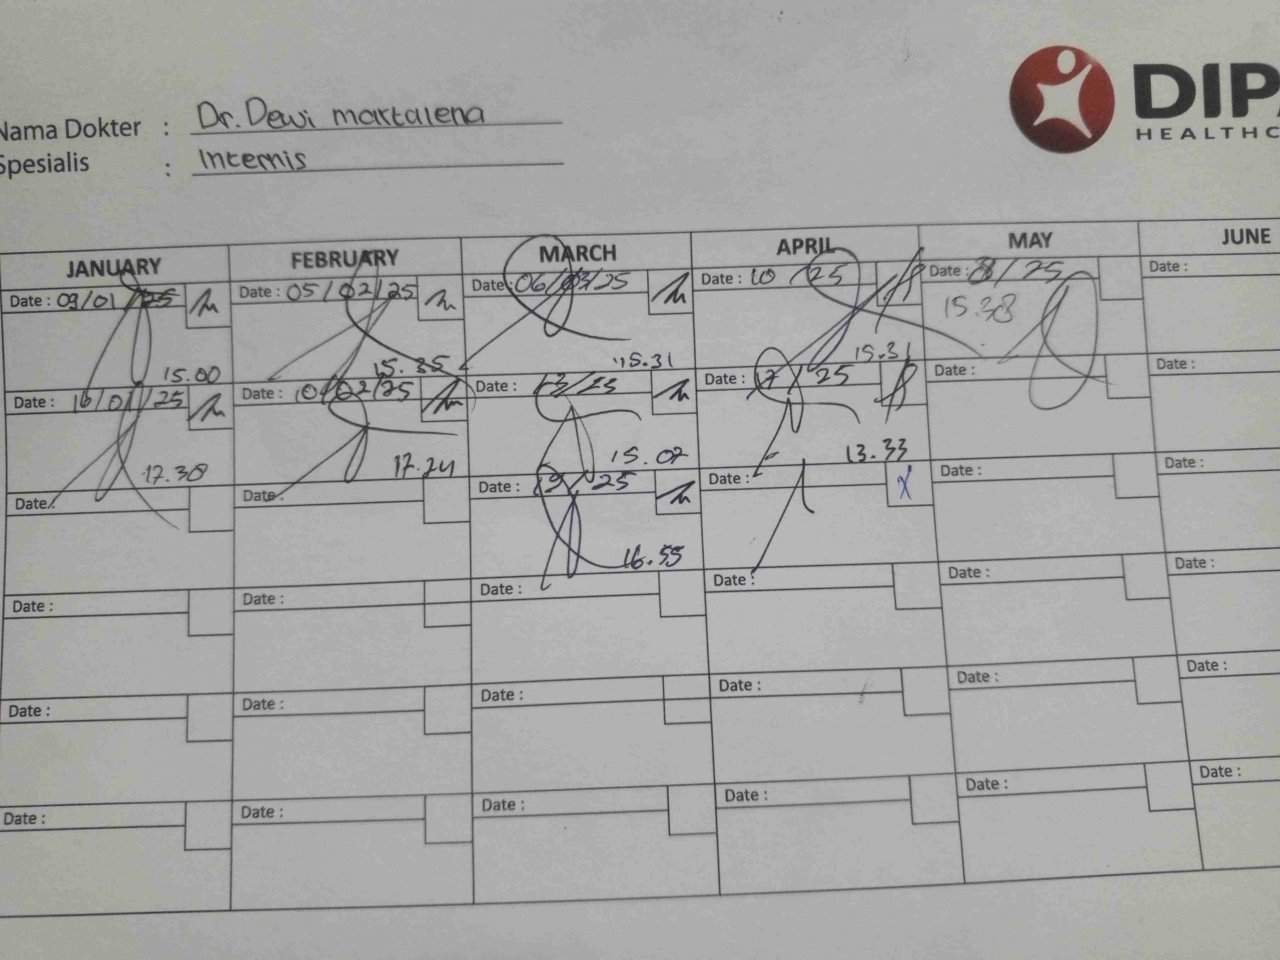 Nama Dokter : Dr. Dewi martalena
Spesialis : Internis
DIPA
HEALTHC
JANUARY FEBRUARY MARCH APRIL MAY JUNE
Date : 09/01/25 Date : 05/02/25 Date : 06/03/25 Date : 10 /25 Date : 8/25 Date :
15.00 15.35 15.31 15.31 15.38
Date : 16/01/25 Date : 10/02/25 Date : 13/25 Date : 17/25 Date : Date :
17.30 17.24 15.07 13.33
Date : Date : Date : 19/25 Date : Date : Date :
16.55
Date : Date : Date : Date : Date : Date :
Date : Date : Date : Date : Date : Date :
Date : Date : Date : Date : Date : Date :